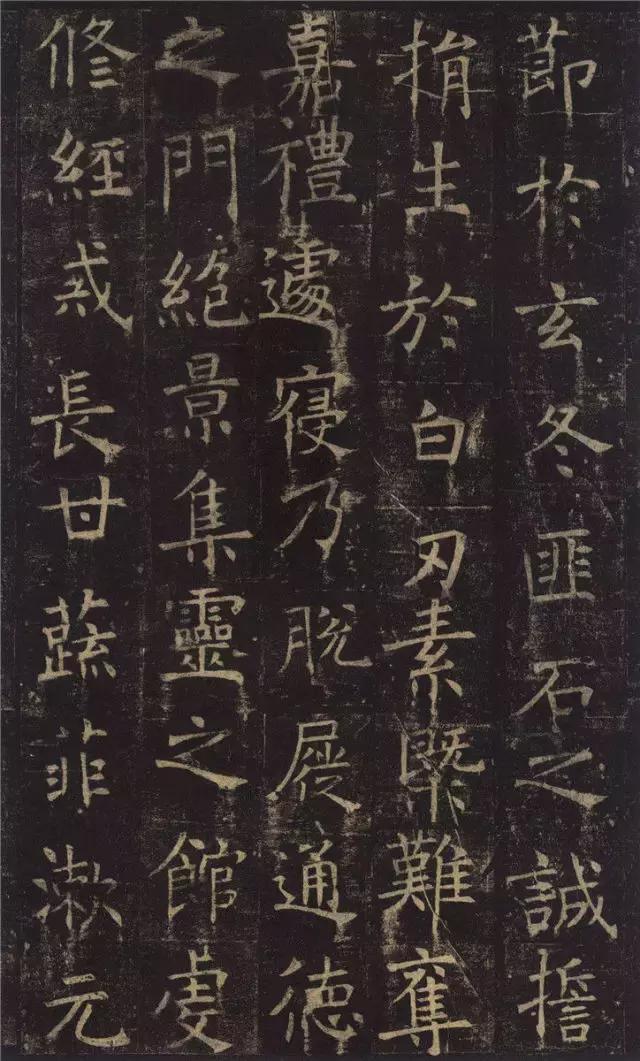 節於玄冬匪石之誠擔
捐生於白刃素槩難奪
嘉禮遽寢乃脫屣通德
之門絕景集靈之館虔
修經戒長甘蔬菲漱元